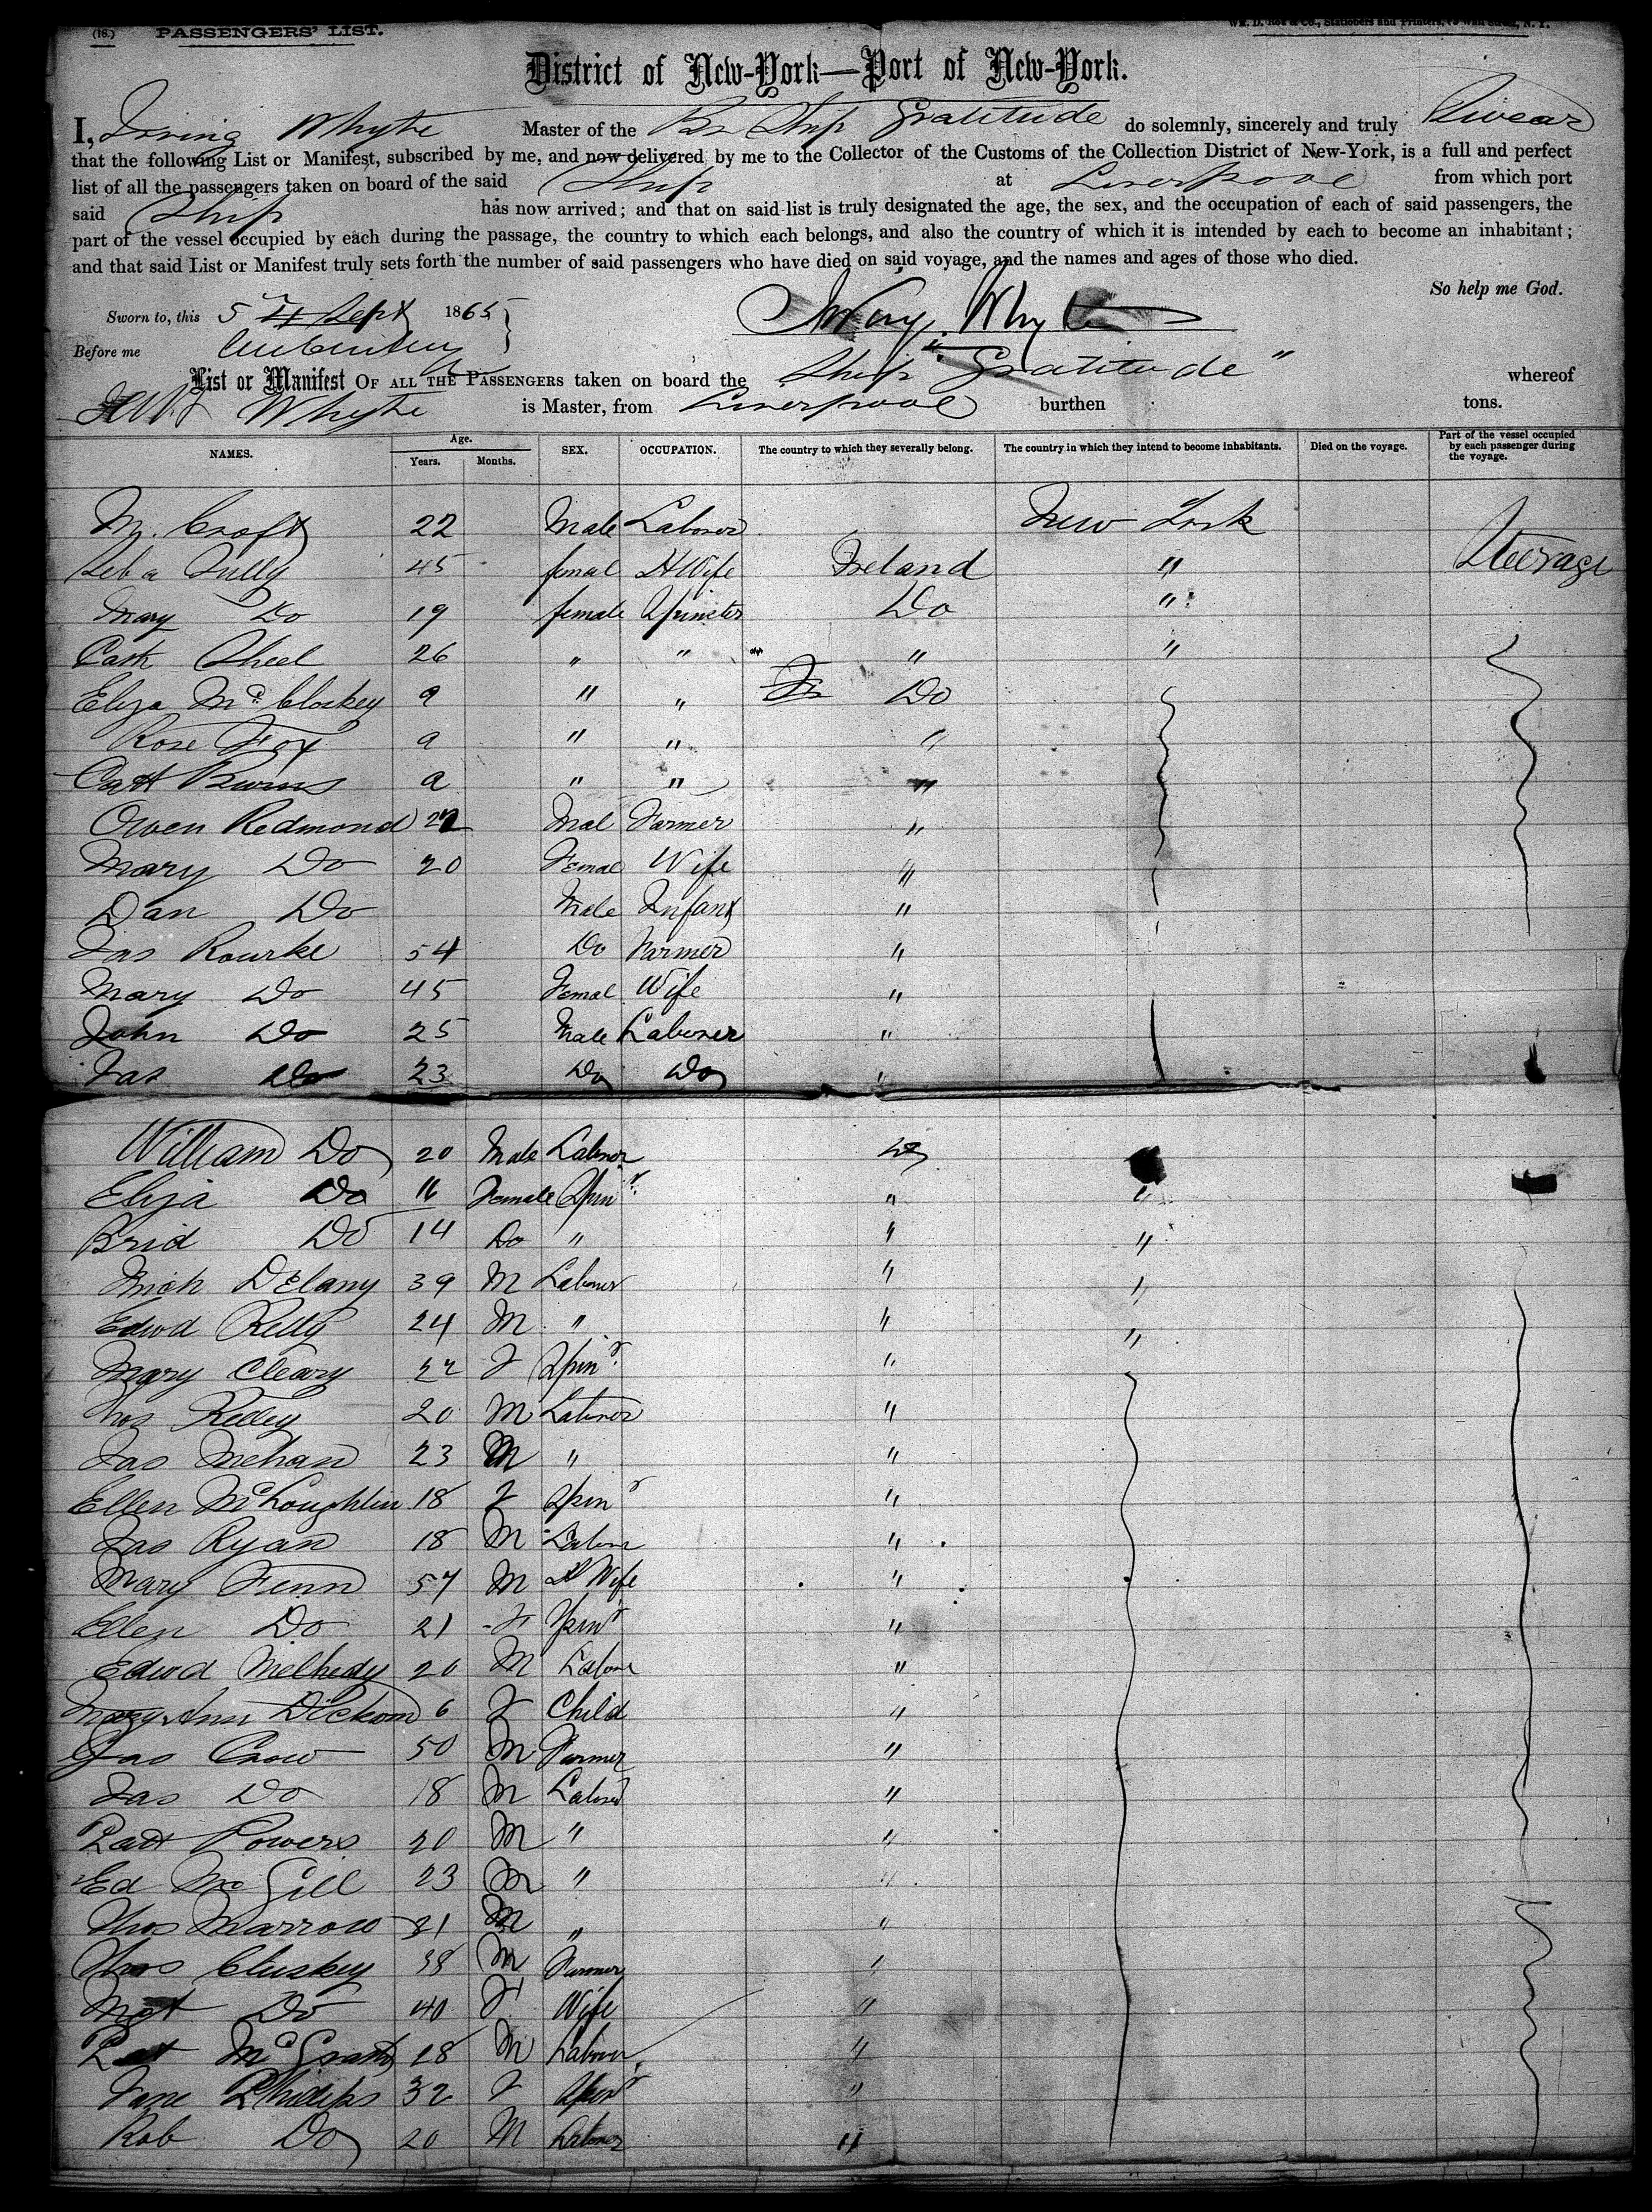 (16.) PASSENGERS' LIST.
Wm. D. Roe & Co., Stationers and Printers, Wall Street, N. Y.
District of New-York—Port of New-York.
I, Irving Whyte Master of the Br Ship Gratitude do solemnly, sincerely and truly Swear
that the following List or Manifest, subscribed by me, and now delivered by me to the Collector of the Customs of the Collection District of New-York, is a full and perfect
list of all the passengers taken on board of the said Ship at Liverpool from which port
said Ship has now arrived; and that on said list is truly designated the age, the sex, and the occupation of each of said passengers, the
part of the vessel occupied by each during the passage, the country to which each belongs, and also the country of which it is intended by each to become an inhabitant;
and that said List or Manifest truly sets forth the number of said passengers who have died on said voyage, and the names and ages of those who died.
So help me God.
Sworn to, this 5 Sept 1865 Irving Whyte
Before me
List or Manifest OF ALL THE PASSENGERS taken on board the Ship "Gratitude" whereof
Whyte is Master, from Liverpool burthen tons.
NAMES. Age. Years. Months. SEX. OCCUPATION. The country to which they severally belong. The country in which they intend to become inhabitants. Died on the voyage. Part of the vessel occupied by each passenger during the voyage.
M. Croft 22 Male Laborer New York
Tully 45 femal H Wife Ireland " Steerage
Mary Do 19 female Spinster Do "
Cath Sheel 26 " " " "
Eliza McCloskey a " " Do
Rose Fox a " " "
Cath Burns a " " "
Owen Redmond 22 Mal Farmer "
Mary Do 20 Femal Wife "
Dan Do Male Infant "
Jas Rourke 54 Do Farmer "
Mary Do 45 Femal Wife "
John Do 25 Male Laborer "
Jas Do 23 Do Do "
William Do 20 Male Laborer Do
Eliza Do 16 Female Spinr " "
Brid Do 14 Do " " "
Mich Delany 39 M Laborer " "
Edwd Kelly 24 M " " "
Mary Cleary 22 F Spinr "
Thos Kelley 20 M Laborer "
Jas Mehan 23 M " "
Ellen McLoughlin 18 F Spinr "
Jas Ryan 18 M Labore "
Mary Finn 57 M H Wife "
Ellen Do 21 F Spinr "
Edwd Melhedy 20 M Labore "
Mary Ann Dickson 6 F Child "
Jas Crow 50 M Farmer "
Jas Do 18 M Labored "
Patt Powers 20 M " "
Ed McGill 23 M " "
Thos Marrow 21 M " "
Thos Cluskey 38 M Farmer "
Mgt Do 40 F Wife "
Pat McGrath 28 M Laborer "
Jane Phillips 32 F Spinr "
Rob Do 20 M Laborer "